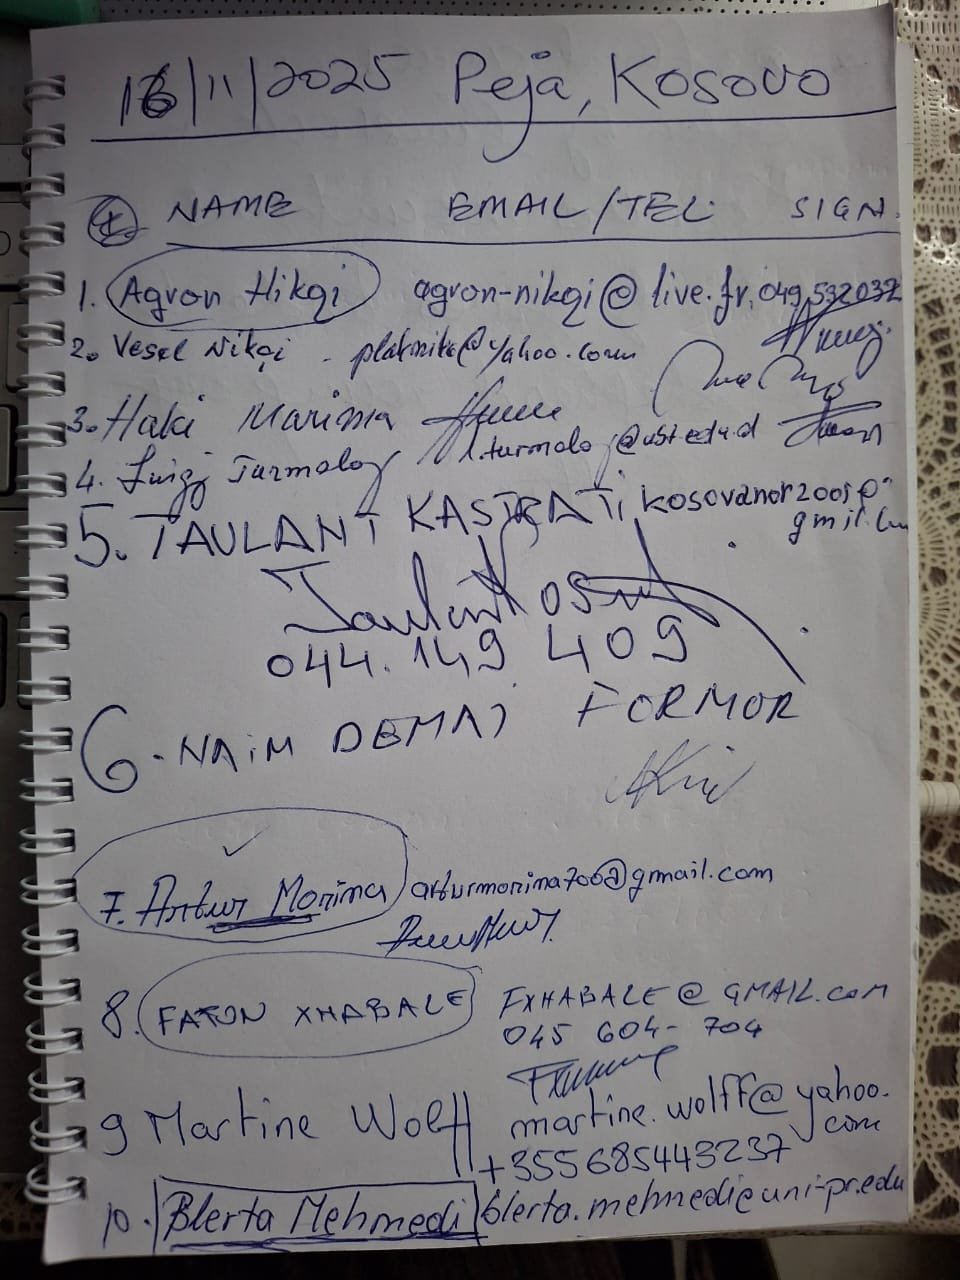 16/11/2025 Peja, Kosovo
NAME EMAIL/TEL. SIGN.
1. Agron Nikqi agron-nikqi@live.fr, 049 532 037
2. Vesel Nikqi - platnike@yahoo.com
3. Haki Marina
4. Luigj Turmalaj l.turmalaj@ust.edu.al
5. TAULANT KASTRATi kosovanor2005@
gmil.com
044.149 409
6. NAIM DEMAJ FORMOR
7. Artur Morina arturmorina706@gmail.com
8. FATON XHABALE FXHABALE@GMAIL.COM
045 604-704
9 Martine Wolff martine.wolff@yahoo.
com
+355685443237
10. Blerta Mehmedi blerta.mehmedi@uni-pr.edu